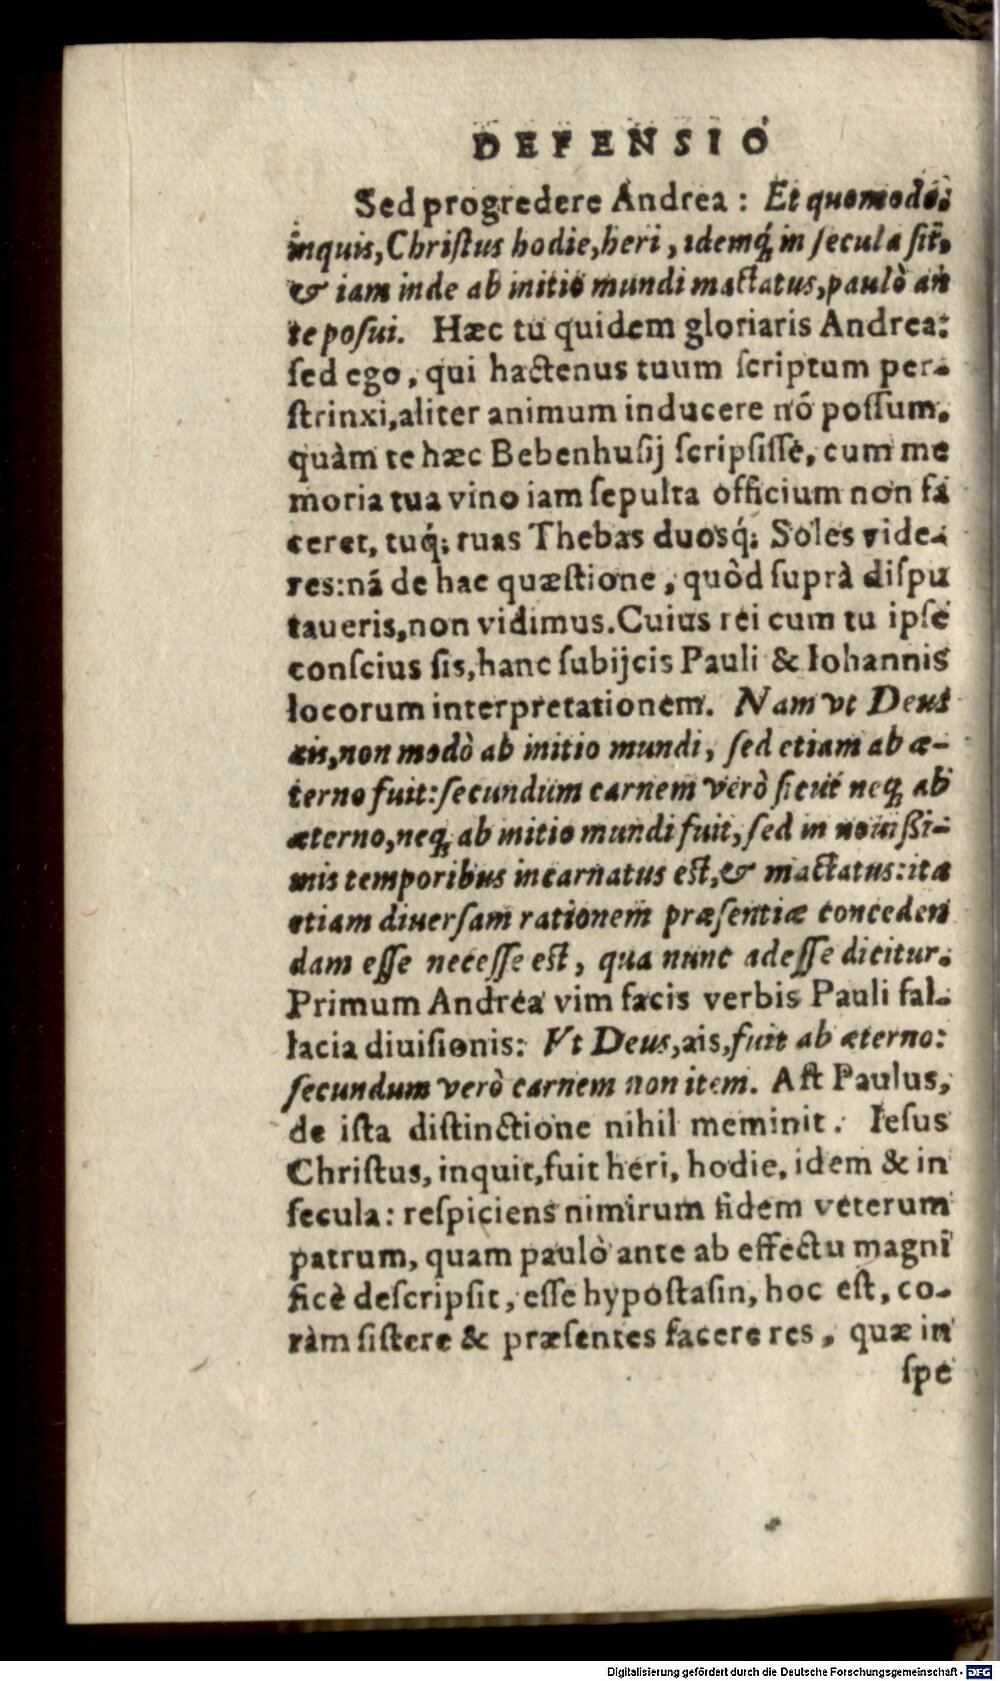 DEFENSIO
Sed progredere Andrea : Et quomodo,
inquis, Chriſtus hodie, heri, idemq́; in ſecula ſit,
& iam inde ab initio mundi mactatus, paulò an
te poſui. Hæc tu quidem gloriaris Andrea:
ſed ego, qui hactenus tuum ſcriptum per-
ſtrinxi, aliter animum inducere nõ poſſum,
quàm te hæc Bebenhuſij ſcripſiſſe, cum me
moria tua vino iam ſepulta officium non fa
ceret, tuq́; tuas Thebas duosq́; Soles vide-
res: nã de hac quæſtione, quòd ſuprà diſpu
taueris, non vidimus. Cuius rei cum tu ipſe
conſcius ſis, hanc ſubijcis Pauli & Iohannis
locorum interpretationem. Nam vt Deus
ais, non modò ab initio mundi, ſed etiam ab æ-
terno fuit: ſecundum carnem verò ſicut neq; ab
æterno, neq; ab initio mundi fuit, ſed in nouiſſi-
mis temporibus incarnatus eſt, & mactatus: ita
etiam diuerſam rationem præſentiæ conceden
dam eſſe neceſſe eſt, qua nunc adeſſe dicitur.
Primum Andrea vim facis verbis Pauli fal-
lacia diuiſionis: Vt Deus, ais, fuit ab æterno:
ſecundum verò carnem non item. Aſt Paulus,
de iſta diſtinctione nihil meminit. Ieſus
Chriſtus, inquit, fuit heri, hodie, idem & in
ſecula: reſpiciens nimirum fidem veterum
patrum, quam paulò ante ab effectu magni
ficè deſcripſit, eſſe hypoſtaſin, hoc eſt, co-
ràm ſiſtere & præſentes facere res, quæ in
ſpe
Digitalisierung gefördert durch die Deutsche Forschungsgemeinschaft - DFG